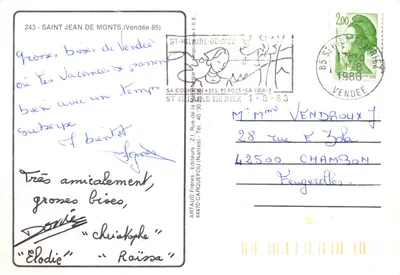 243 - SAINT JEAN DE MONTS (Vendée 85)
Grosses bises de Vendée
où les vacances se passent
bien avec un temps
superbe
A bientôt
Agnès
Très amicalement,
grosses bises,
"Christophe"
"Elodie" "Raissa"
ARTAUD Frères, Editeurs - Z.I. Rue de la
44470 CARQUEFOU (Nantes) Tél. 40 30
ST-HILAIRE-DE-RIEZ
SA CORNICHE • SES PLAGES • SA FORÊT
1-8-88
2,00
85 ST HILAIRE DE RIEZ
1988
VENDEE
M. Mme VENDROUX J
28 rue E Zola
42500 CHAMBON
Feugerolles